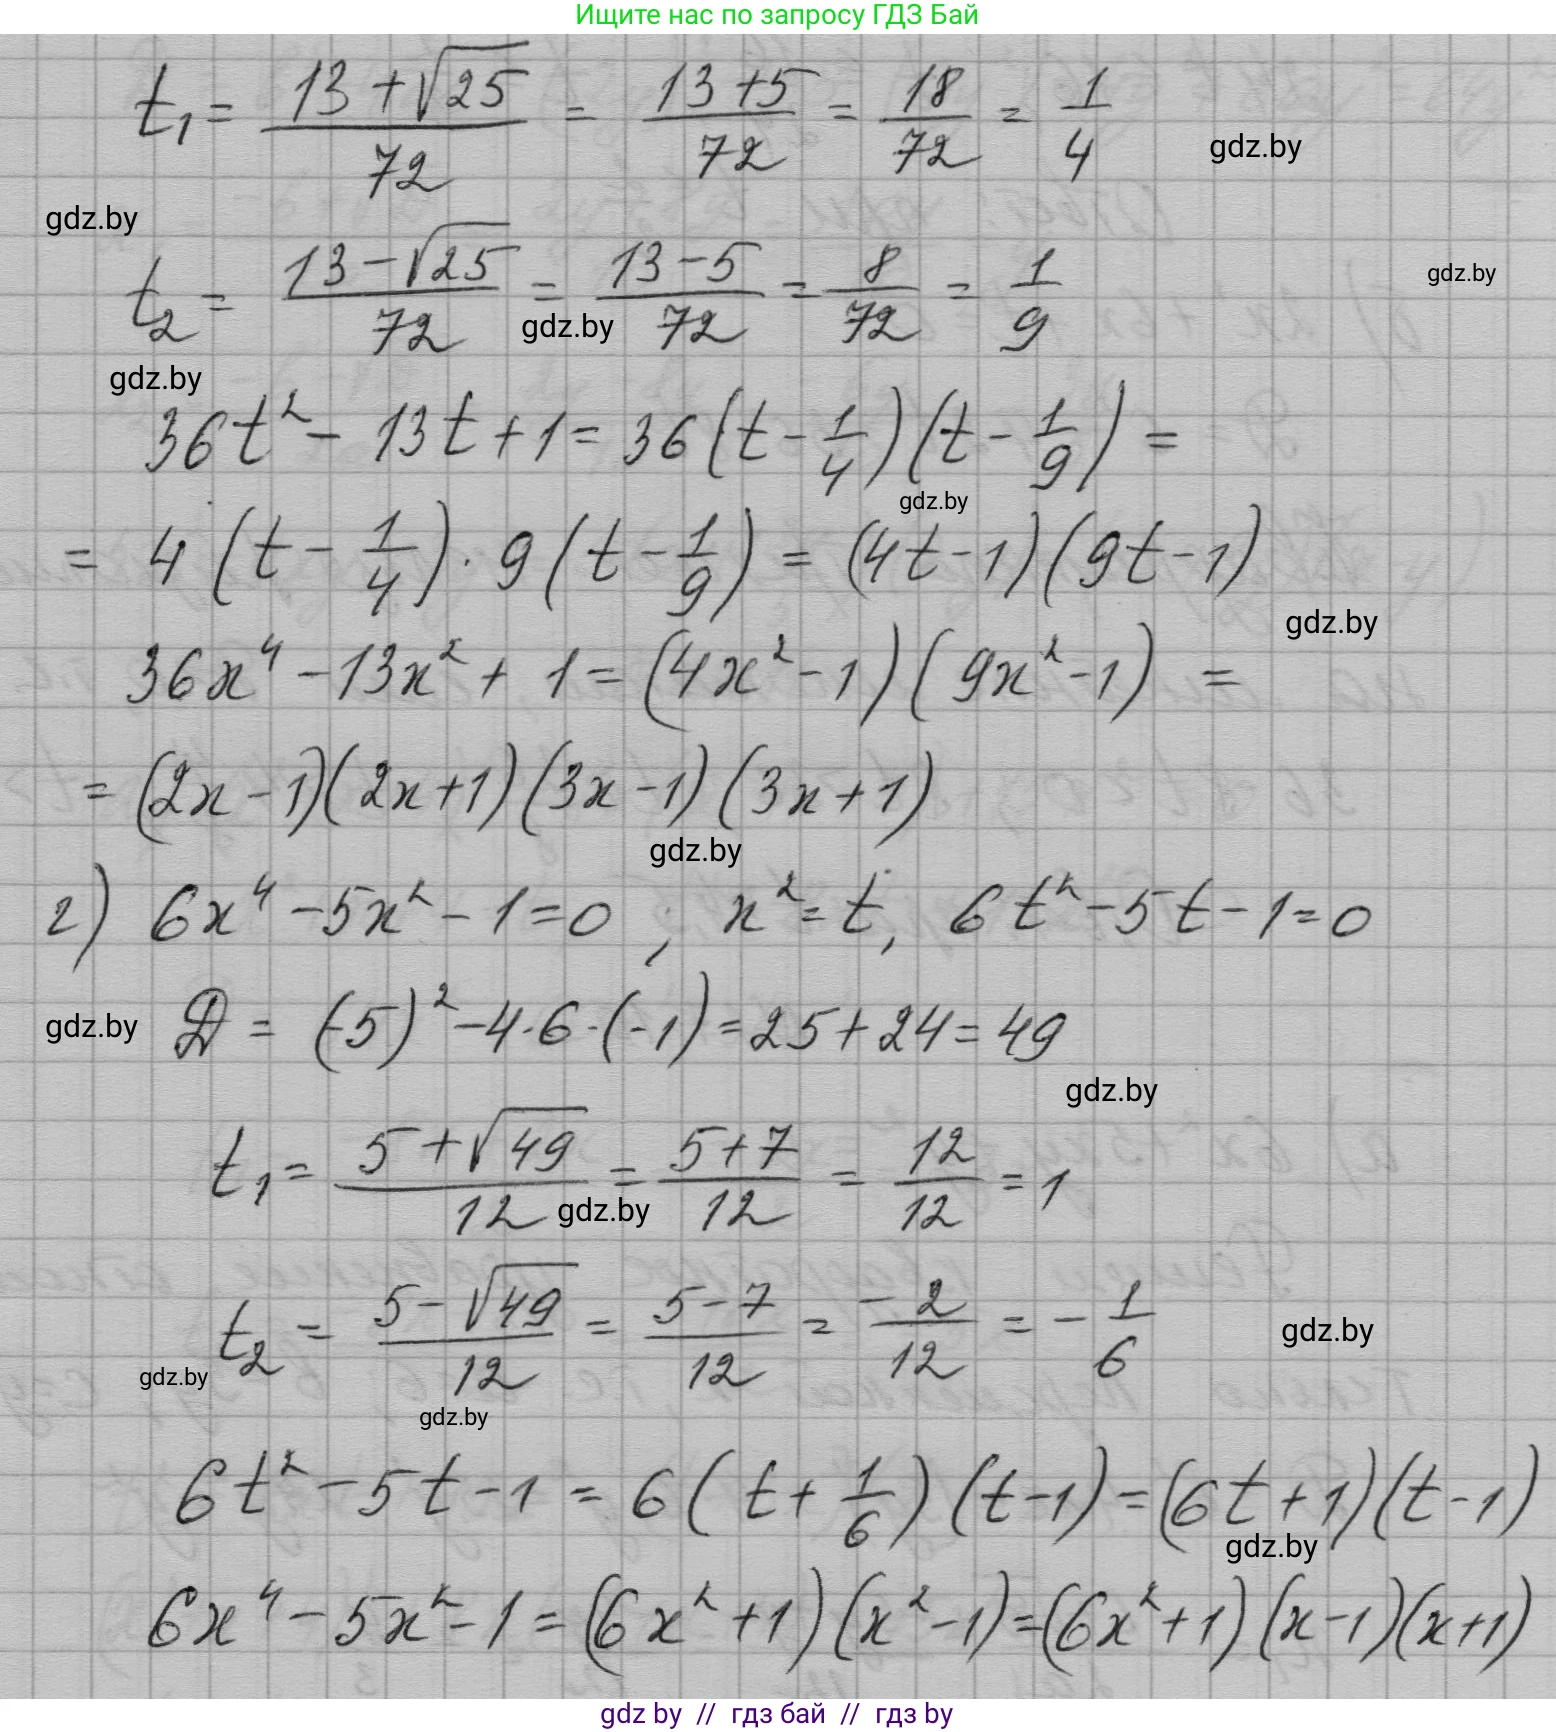 Ищите нас по запросу ГДЗ Бай
t₁ = (13 + √25)/72 = (13 + 5)/72 = 18/72 = 1/4
gdz.by
gdz.by
t₂ = (13 − √25)/72 = (13 − 5)/72 = 8/72 = 1/9
gdz.by
gdz.by
gdz.by
36t² − 13t + 1 = 36(t − 1/4)(t − 1/9) =
gdz.by
= 4(t − 1/4) · 9(t − 1/9) = (4t − 1)(9t − 1)
gdz.by
36x⁴ − 13x² + 1 = (4x² − 1)(9x² − 1) =
= (2x − 1)(2x + 1)(3x − 1)(3x + 1)
gdz.by
г) 6x⁴ − 5x² − 1 = 0 ; x² = t, 6t² − 5t − 1 = 0
gdz.by
D = (−5)² − 4·6·(−1) = 25 + 24 = 49
gdz.by
t₁ = (5 + √49)/12 = (5 + 7)/12 = 12/12 = 1
gdz.by
t₂ = (5 − √49)/12 = (5 − 7)/12 = −2/12 = −1/6
gdz.by
gdz.by
gdz.by
6t² − 5t − 1 = 6(t + 1/6)(t − 1) = (6t + 1)(t − 1)
gdz.by
6x⁴ − 5x² − 1 = (6x² + 1)(x² − 1) = (6x² + 1)(x − 1)(x + 1)
gdz by // гдз бай // гдз by